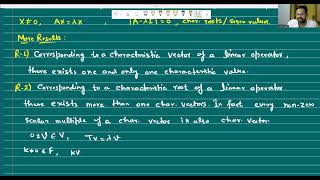 X≠0, AX=λX |A-λI|=0, char. roots/Eigen values.
More Results:
R-1) Corresponding to a characteristic vector of a linear operator,
there exists one and only one characteristic value.
R-2) Corresponding to a characteristic root of a linear operator
there exists more than one char. vectors. In fact every non-zero
scalar multiple of a char. vector is also char. vector.
0≠v∈V, Tv=λv
k≠0∈F, kv